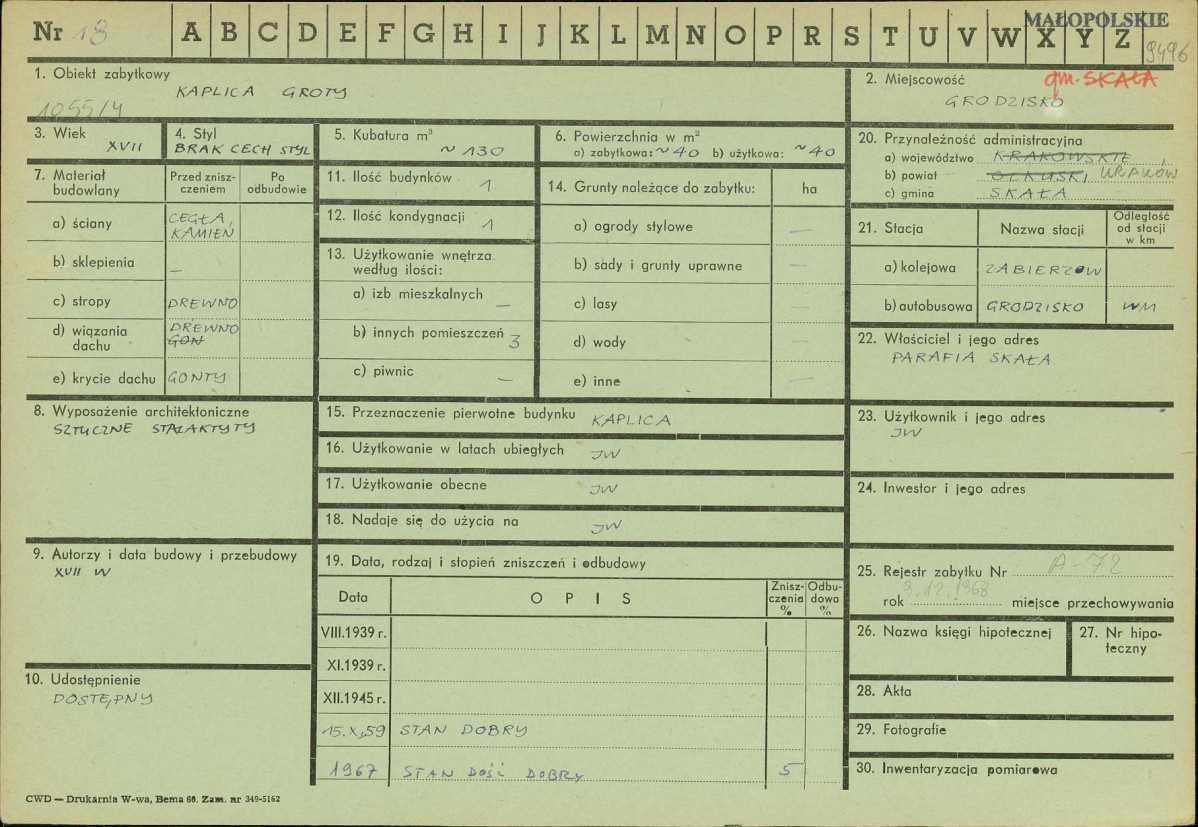 MAŁOPOLSKIE
Nr 13 A B C D E F G H I J K L M N O P R S T U V W X Y Z
9496
1. Obiekt zabytkowy
KAPLICA GROTY
1055/4
2. Miejscowość gm. SKAŁA
GRODZISKO
3. Wiek
XVII
4. Styl
BRAK CECH STYL
5. Kubatura m³
~130
6. Powierzchnia w m²
a) zabytkowa: ~40 b) użytkowa: ~40
20. Przynależność administracyjna
a) województwo KRAKOWSKIE,
b) powiat OLKUSKI, KRAKÓW
c) gmina SKAŁA
7. Materiał budowlany
Przed zniszczeniem
Po odbudowie
a) ściany CEGŁA, KAMIEŃ
b) sklepienia —
c) stropy DREWNO
d) wiązania dachu DREWNO GON
e) krycie dachu GONTY
11. Ilość budynków 1
12. Ilość kondygnacji 1
13. Użytkowanie wnętrza według ilości:
a) izb mieszkalnych —
b) innych pomieszczeń 3
c) piwnic —
14. Grunty należące do zabytku: ha
a) ogrody stylowe —
b) sady i grunty uprawne —
c) lasy —
d) wody —
e) inne —
21. Stacja Nazwa stacji Odległość od stacji w km
a) kolejowa ZABIERZÓW
b) autobusowa GRODZISKO WM
22. Właściciel i jego adres
PARAFIA SKAŁA
8. Wyposażenie architektoniczne
SZTUCZNE STALAKTYTY
15. Przeznaczenie pierwotne budynku KAPLICA
16. Użytkowanie w latach ubiegłych JW
17. Użytkowanie obecne JW
18. Nadaje się do użycia na JW
23. Użytkownik i jego adres
JW
24. Inwestor i jego adres
9. Autorzy i data budowy i przebudowy
XVII W
19. Data, rodzaj i stopień zniszczeń i odbudowy
Data OPIS Zniszczenia % Odbudowa %
VIII.1939 r.
XI.1939 r.
XII.1945 r.
15.X.59 STAN DOBRY
1967 STAN DOŚĆ DOBRY 5
25. Rejestr zabytku Nr A-72
rok 9.12.1968 miejsce przechowywania
26. Nazwa księgi hipotecznej
27. Nr hipoteczny
10. Udostępnienie
DOSTĘPNY
28. Akta
29. Fotografie
30. Inwentaryzacja pomiarowa
CWD — Drukarnia W-wa, Bema 60. Zam. nr 349-5162